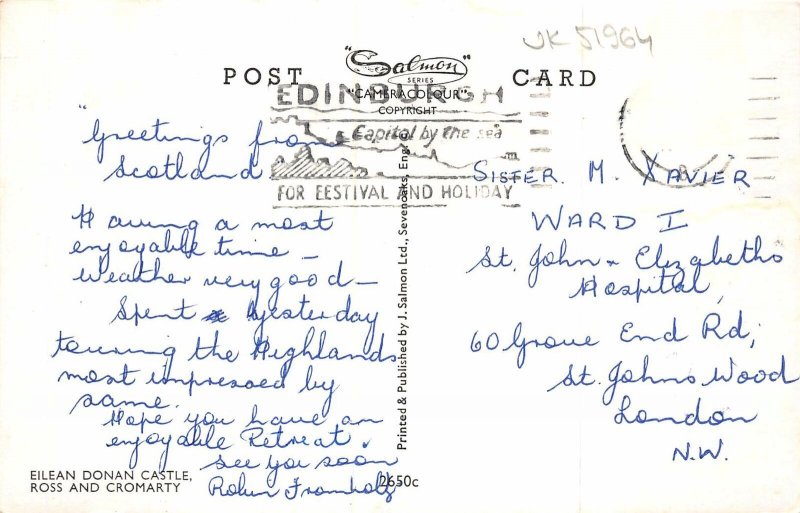 UK 51964
POST CARD
"Salmon"
SERIES
"CAMERACOLOUR"
COPYRIGHT
EDINBURGH
Capital by the sea
FOR FESTIVAL AND HOLIDAY
"Greetings from
Scotland
Having a most
enjoyable time –
Weather very good –
Spent yesterday
touring the Highlands
most impressed by
same.
Hope you have an
enjoyable Retreat.
see you soon
Robin Fromholtz
EILEAN DONAN CASTLE,
ROSS AND CROMARTY
2650c
Printed & Published by J. Salmon Ltd., Sevenoaks, Eng. ©
SISTER. M. XAVIER
WARD I
St. John & Elizabeths
Hospital,
60 Grove End Rd,
St. Johns Wood
London
N.W.